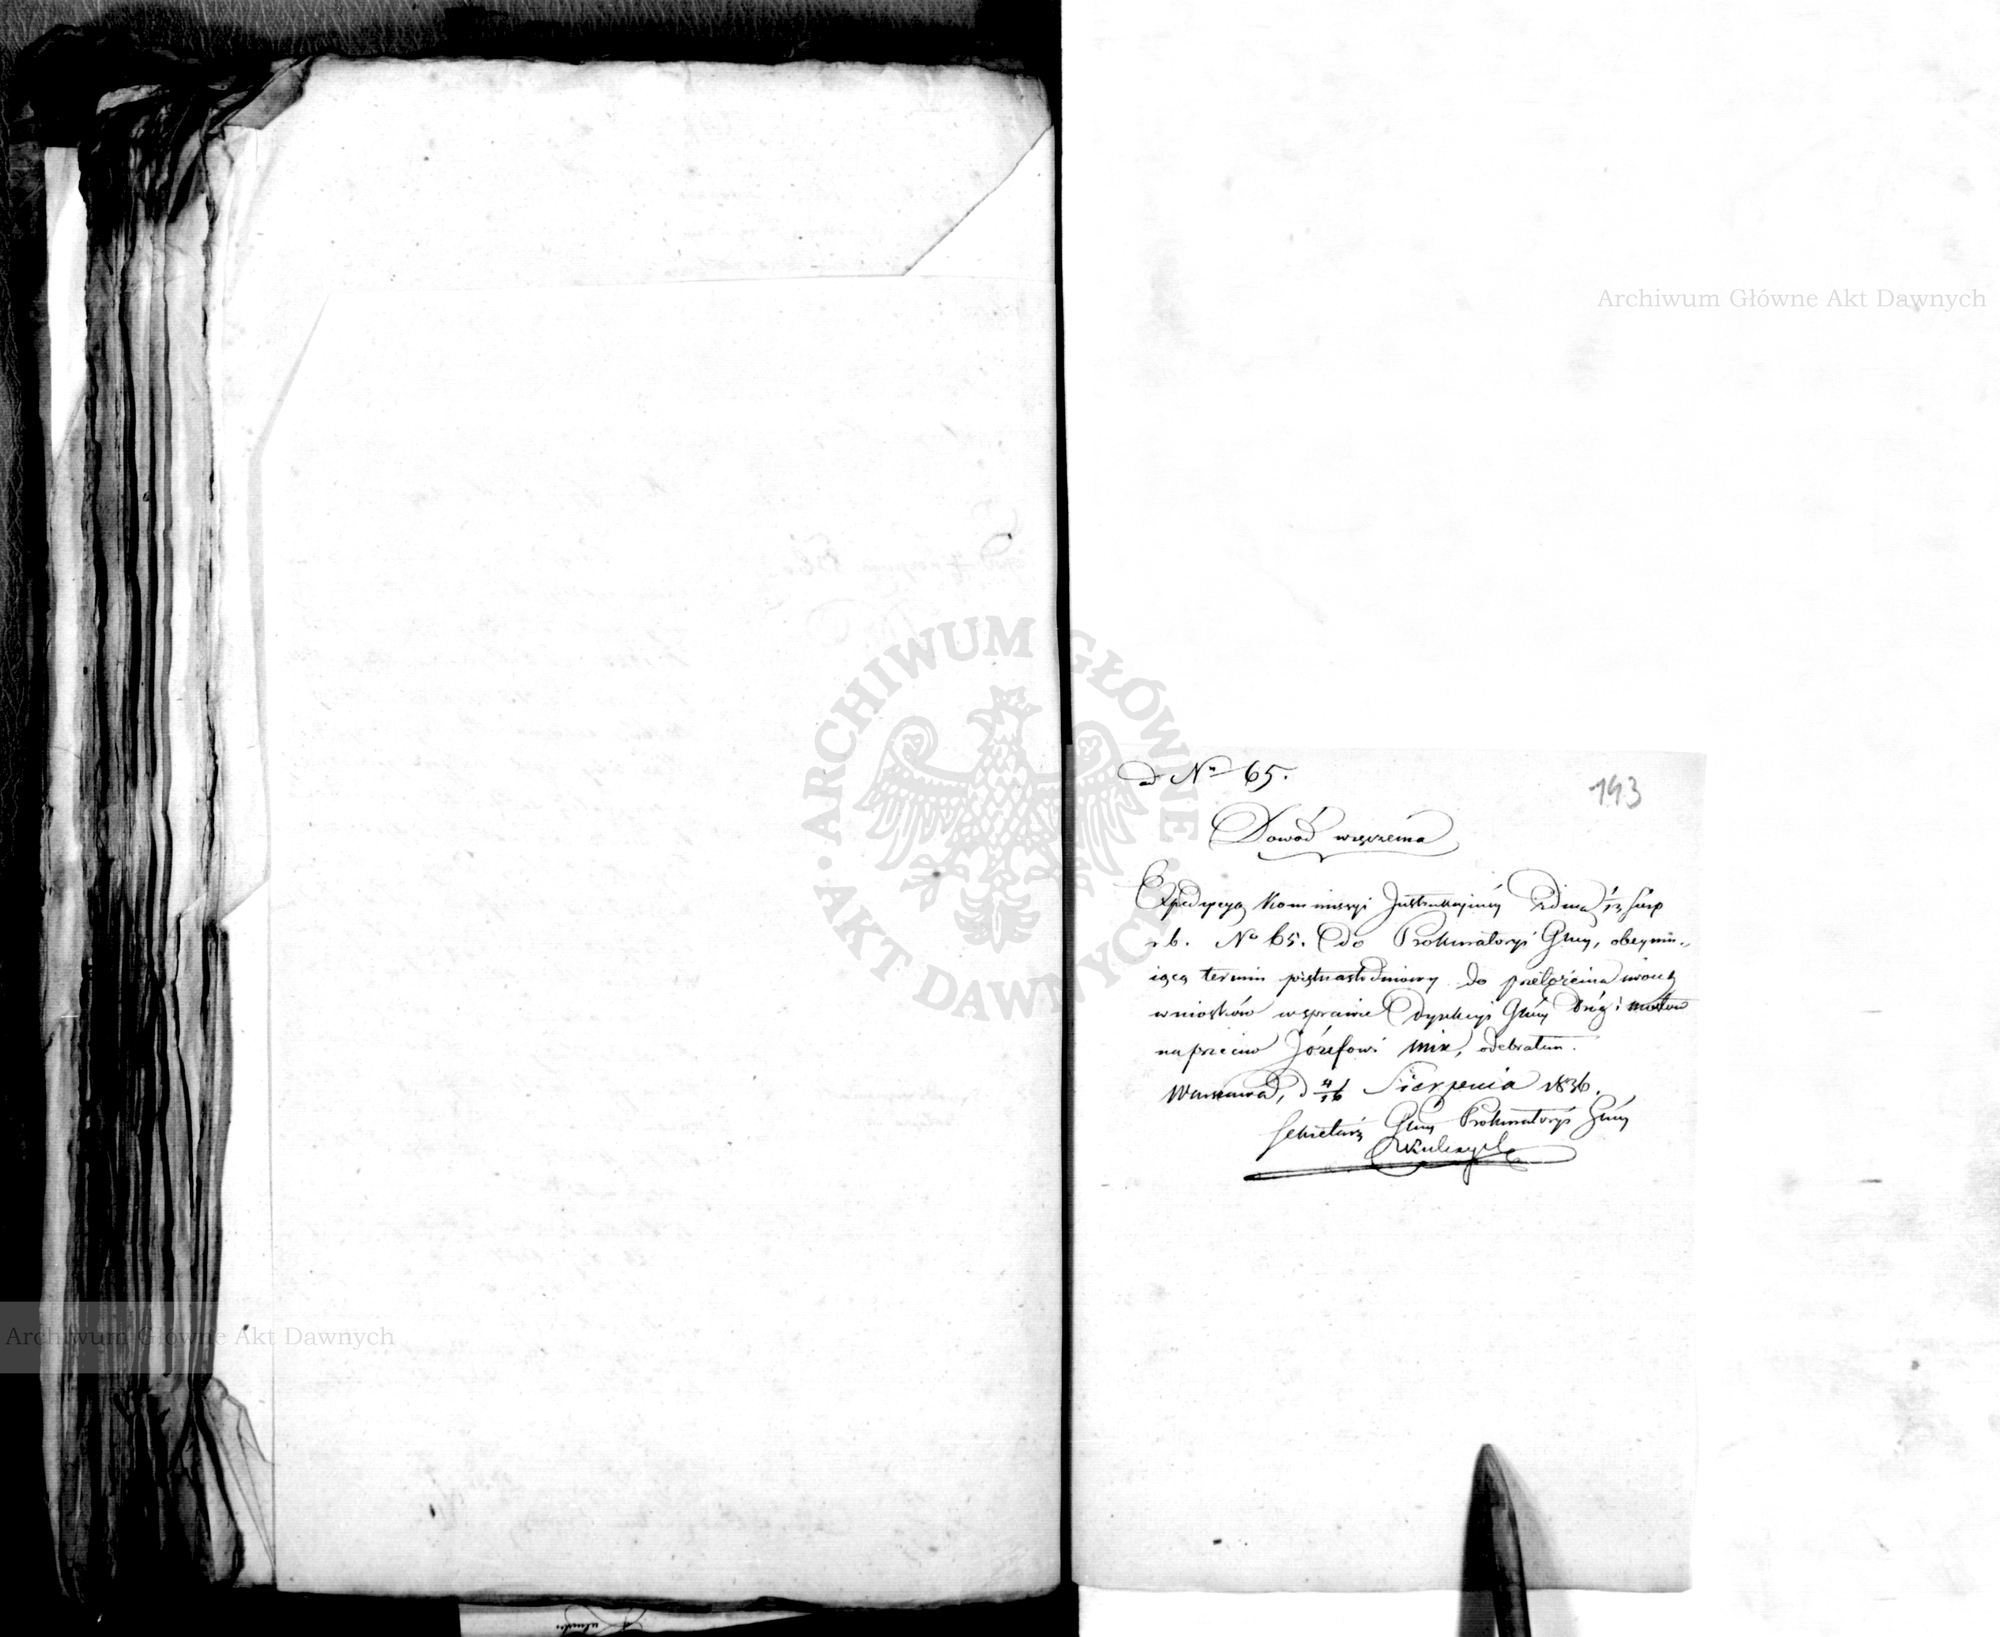 ad Nr 65.
193
Dowód wręczenia
Expedycyą Kommissyi Instrukcyiney z dnia 1/13 Sierp
r b. No 65. do Prokuratoryi Głney, obeymu-
iącą termin piętnastodniowy do przełożenia swoich
wniosków w sprawie Dyrekcyi Głney Dróg i Mostów
naprzeciw Józefowi Mix, odebrałem.
Warszawa, d 4/16 Sierpnia 1836.
Sekretarz Głny Prokuratoryi Głney
ARCHIWUM GŁÓWNE AKT DAWNYCH
Archiwum Główne Akt Dawnych
Archiwum Główne Akt Dawnych